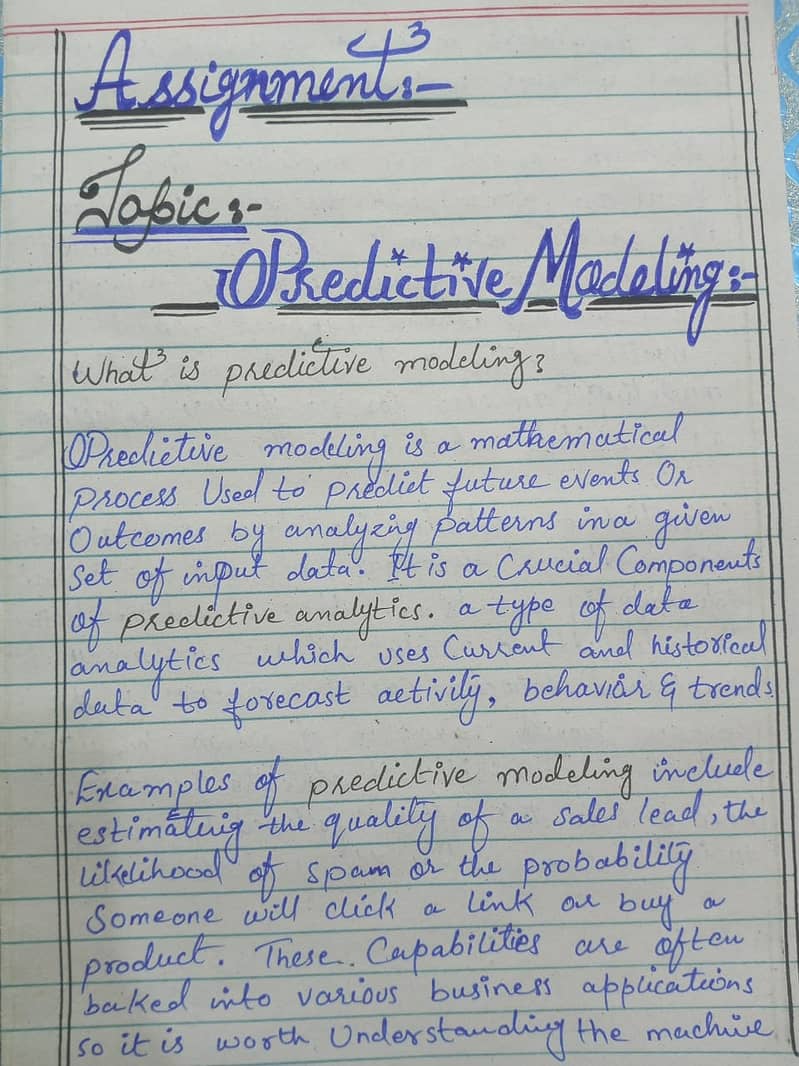 Assignment:-
Topic:-
Predictive Modeling:-
What is predictive modeling?
Predictive modeling is a mathematical
process Used to predict future events Or
Outcomes by analyzing patterns in a given
set of input data. It is a Crucial Components
of predictive analytics. a type of data
analytics which uses Current and historical
data to forecast activity, behavior & trends.
Examples of predictive modeling include
estimating the quality of a sales lead, the
likelihood of spam or the probability
Someone will click a link or buy a
product. These Capabilities are often
baked into various business applications
so it is worth Understanding the machine